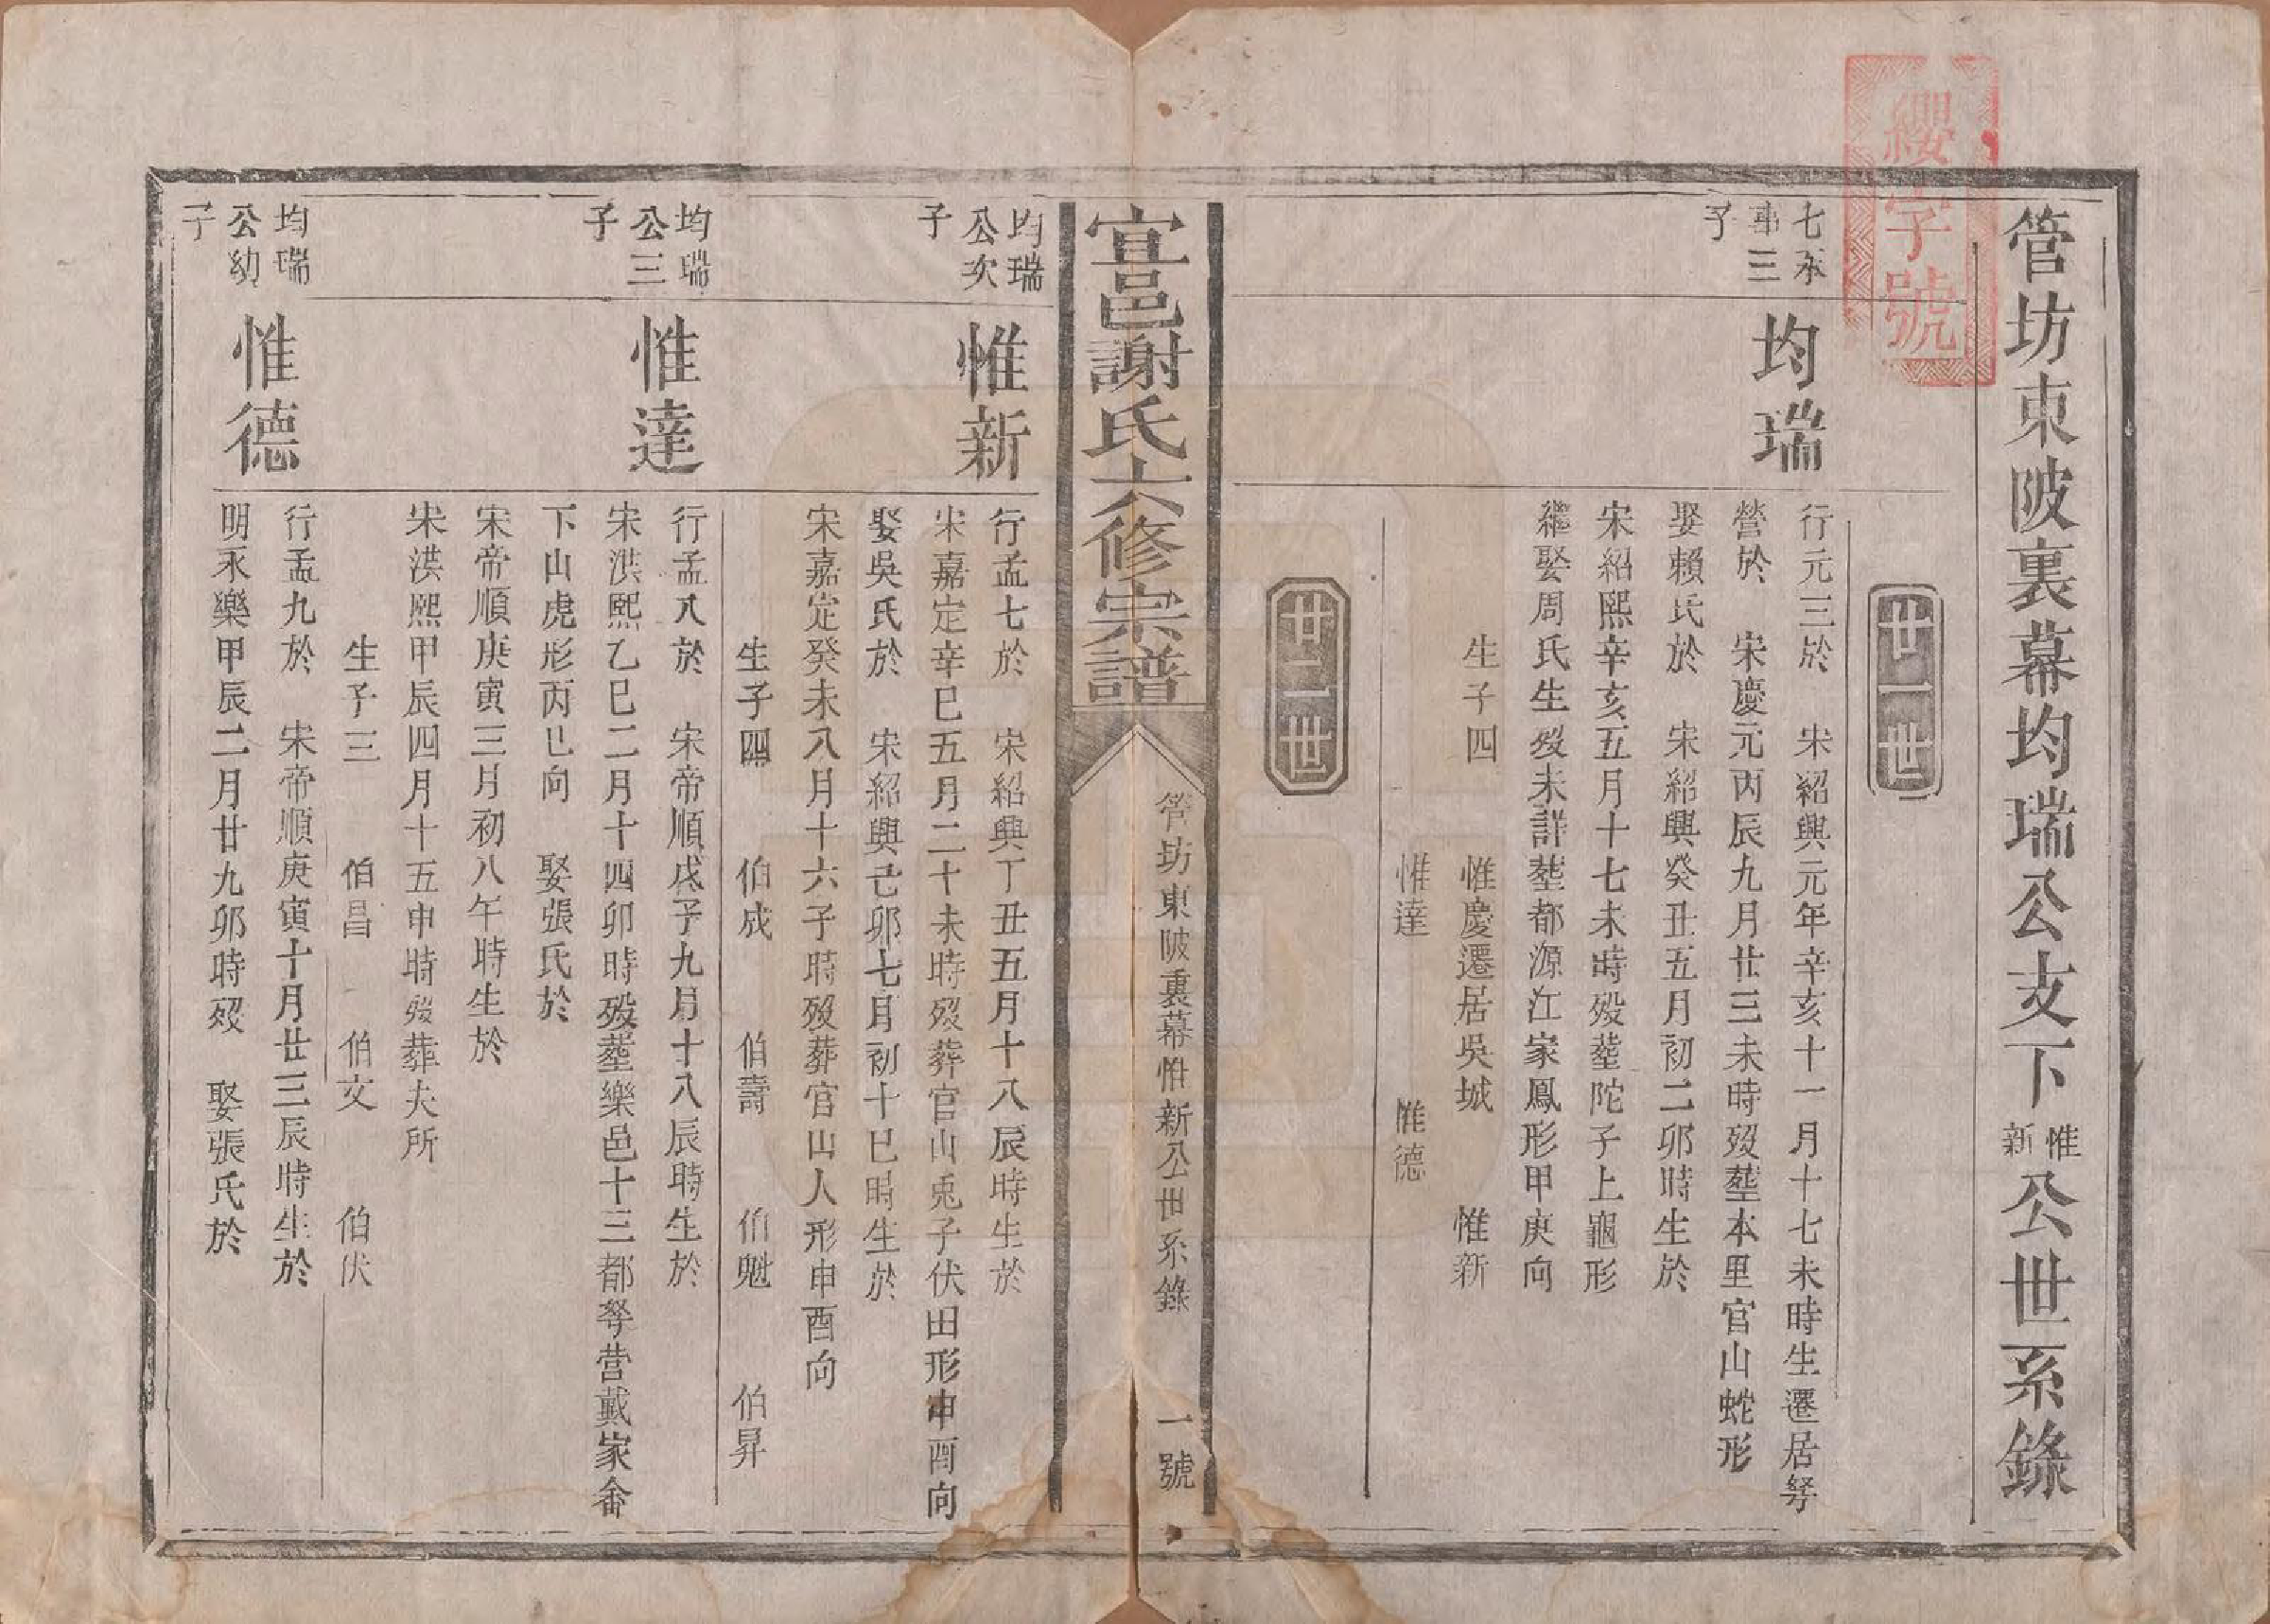 纓字號
管坊東陂裏幕均瑞公支下惟新公世系錄
廿一世
七承事三子
均瑞
行元三於　宋紹興元年辛亥十一月十七未時生遷居
營於　宋慶元丙辰九月廿三未時歿塟本里官山蛇形
娶賴氏於　宋紹興癸丑五月初二卯時生於
宋紹熙辛亥五月十七未時歿塟陀子上龜形
繼娶周氏生歿未詳塟都源江家鳳形甲庚向
生子四　惟慶遷居吳城　惟新
惟達　惟德
廿二世
宜邑謝氏六修宗譜
管坊東陂裏幕惟新公世系錄
一號
均瑞公次子
惟新
行孟七於　宋紹興丁丑五月十八辰時生於
宋嘉定辛巳五月二十未時歿葬官山兎子伏田形申酉向
娶吳氏於　宋紹興己卯七月初十巳時生於
宋嘉定癸未八月十六子時歿葬官山人形申酉向
生子四　伯成　伯壽　伯魁　伯昇
均瑞公三子
惟達
行孟八於　宋帝順戊子九月十八辰時生於
宋洪熙乙巳二月十四卯時歿塟樂邑十三都營戴家
下山虎形丙巳向　娶張氏於
宋帝順庚寅三月初八午時生於
宋洪熙甲辰四月十五申時歿葬夫所
生子三　伯昌　伯文　伯伏
均瑞公幼子
惟德
行孟九於　宋帝順庚寅十月廿三辰時生於
明永樂甲辰二月廿九卯時歿　娶張氏於